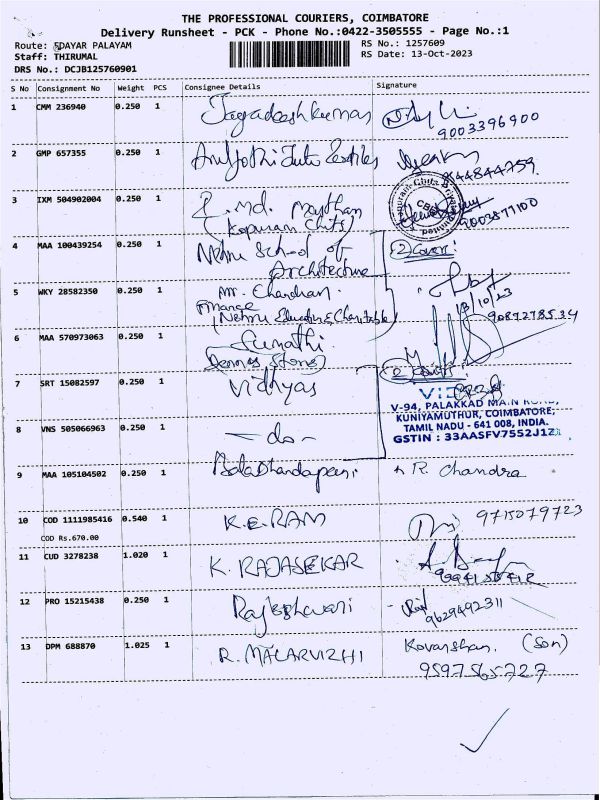 THE PROFESSIONAL COURIERS, COIMBATORE
Delivery Runsheet - PCK - Phone No.:0422-3505555 - Page No.:1
Route: EDAYAR PALAYAM
RS No.: 1257609
Staff: THIRUMAL
RS Date: 13-Oct-2023
DRS No.: DCJB125760901
S No Consignment No Weight PCS Consignee Details Signature
1 CMM 236940 0.250 1 Jagadeesh kumar
9003396900
2 GMP 657355 0.250 1
9444844759
3 IXM 504902004 0.250 1 P. Md.
(Kopuram Chits)
9003877100
4 MAA 100439254 0.250 1 Nehru School of
Architecture
(2) Cover
5 WKY 28582350 0.250 1 Mr. Chandran.
Finance
(Nehru Education & Charitable)
13/10/23
6 MAA 570973063 0.250 1 Sumathi
7 SRT 15082597 0.250 1 Vidhyas
V-94, PALAKKAD MAIN ROAD,
KUNIYAMUTHUR, COIMBATORE,
TAMIL NADU - 641 008, INDIA.
GSTIN : 33AASFV7552J1Z
8 VNS 505066963 0.250 1 - do -
9 MAA 105104502 0.250 1 Baladhandapani R. Chandra
10 COD 1111985416 0.540 1 K.E.RAM 9715079723
COD Rs.670.00
11 CUD 3278238 1.020 1 K. RAJASEKAR
12 PRO 15215438 0.250 1 Rajeshwari
9629492311
13 DPM 688870 1.025 1 R. MALARVIZHI (Son)
9597565727